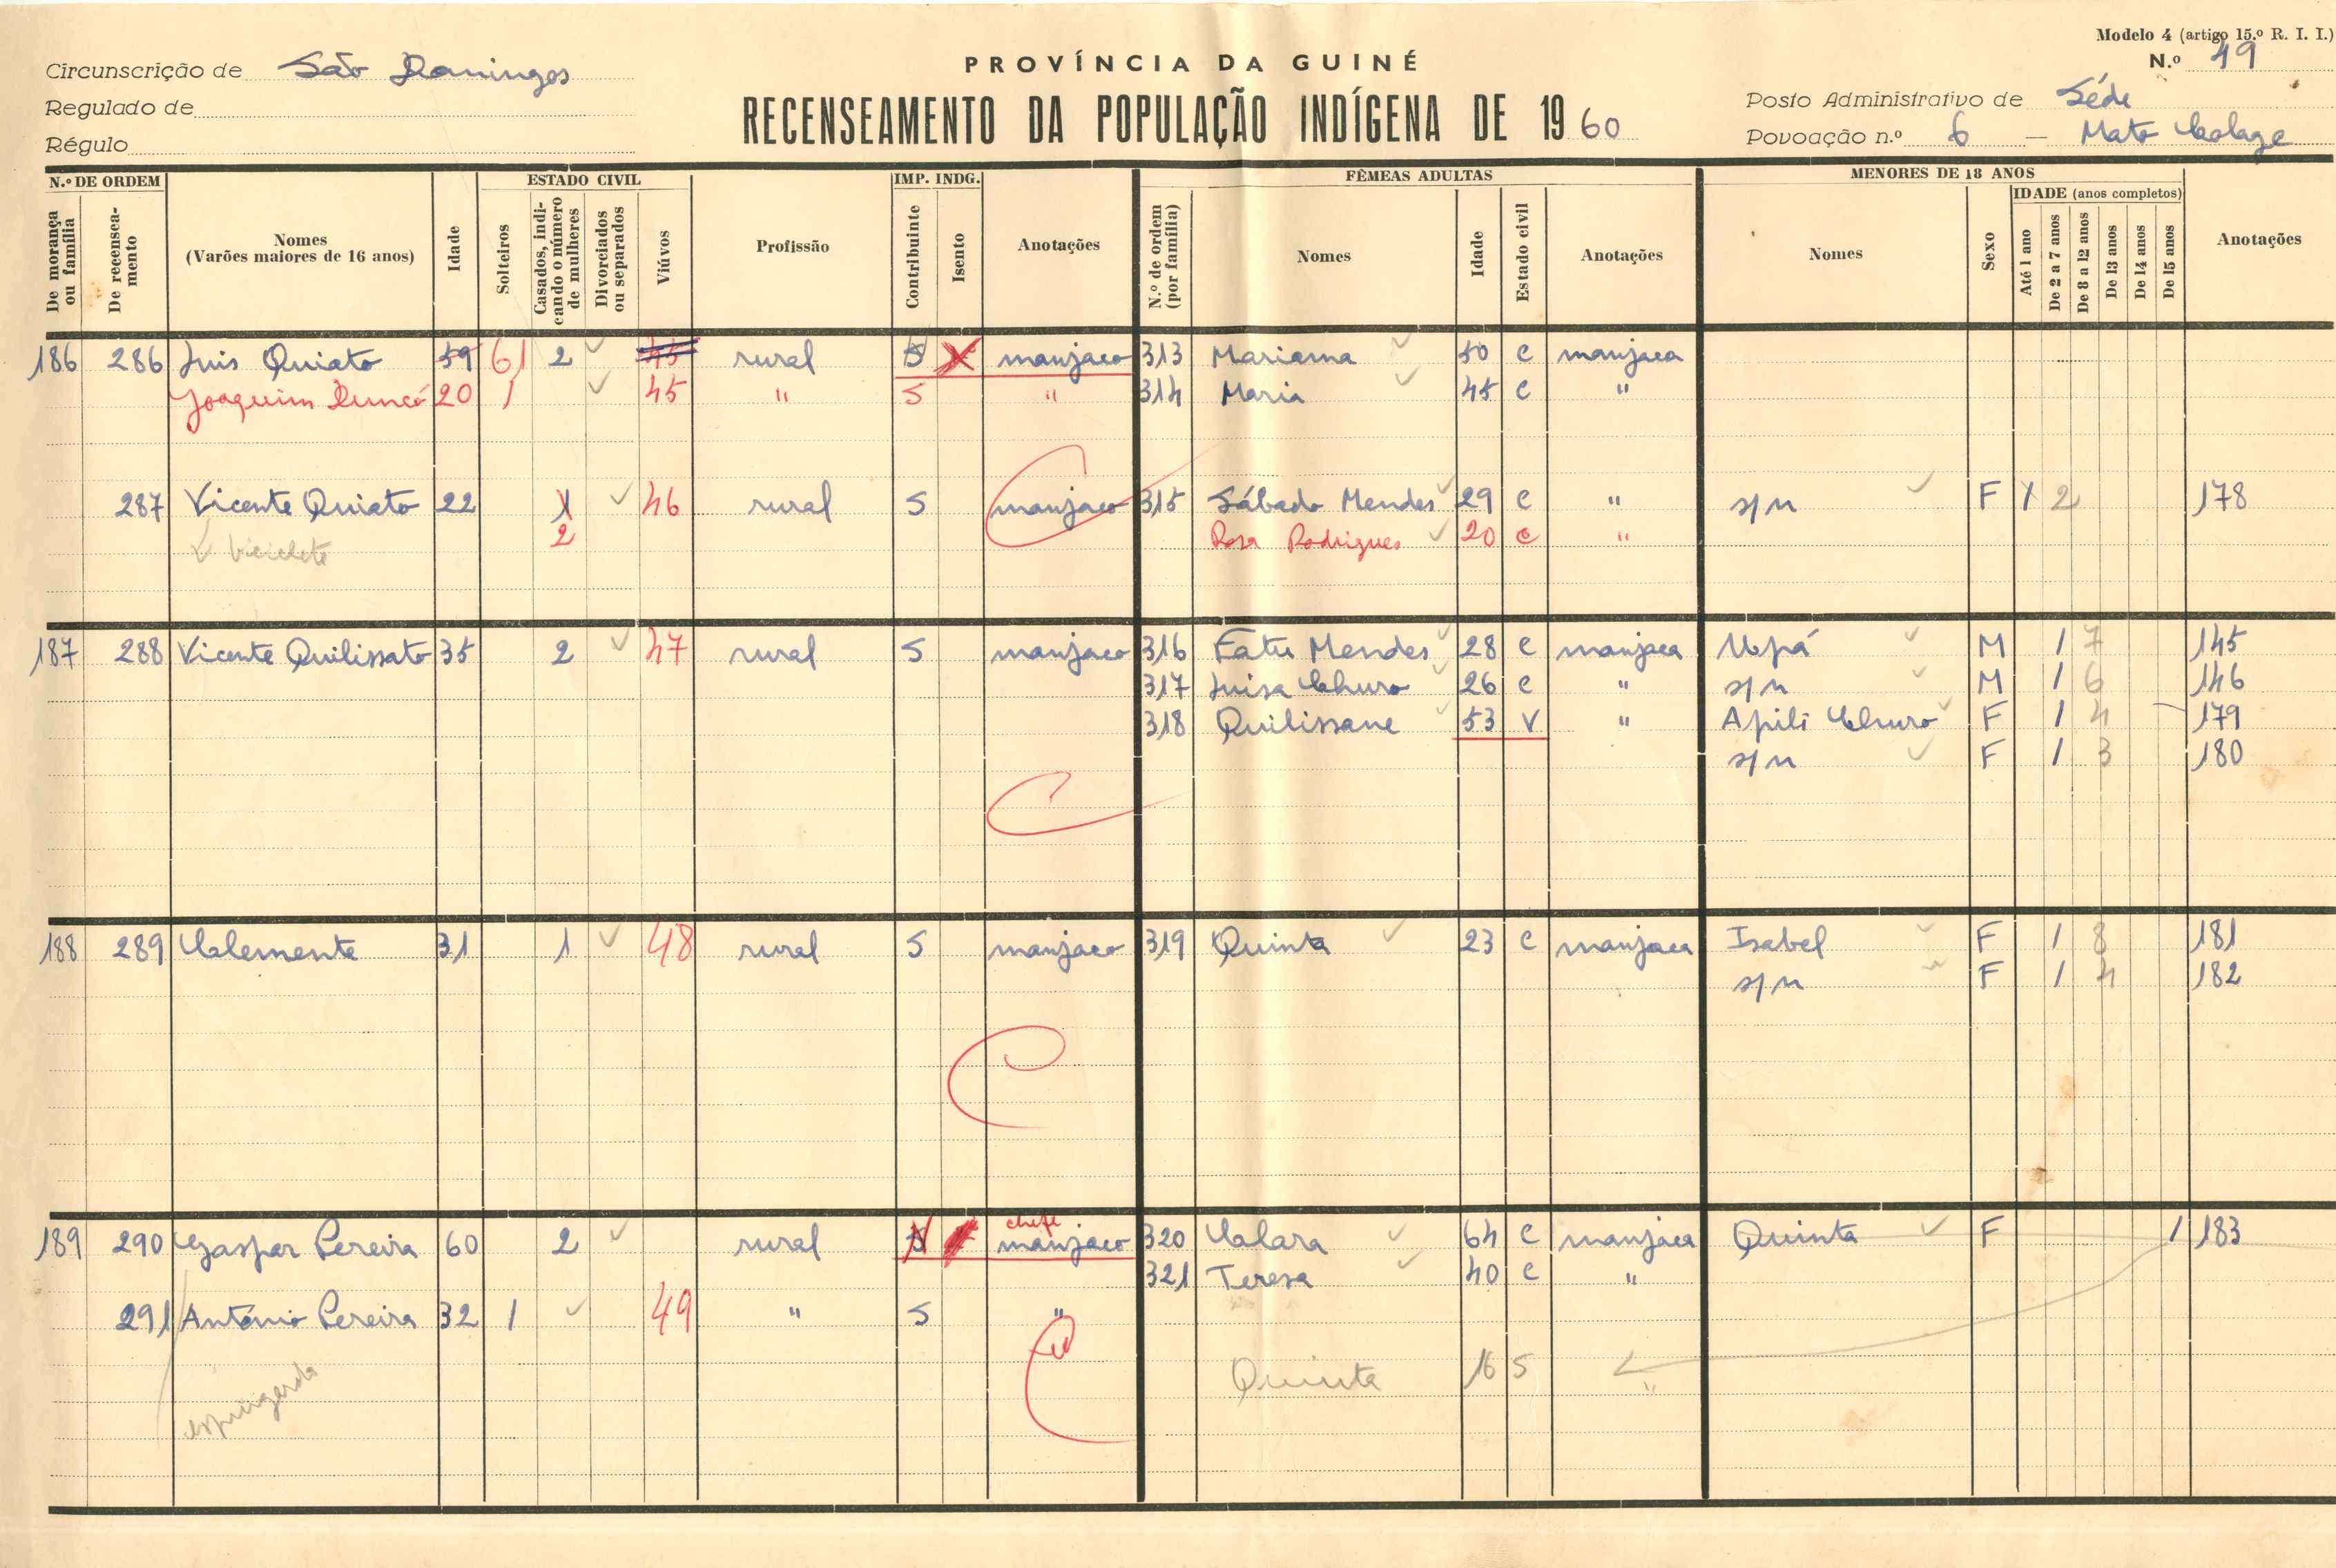 Modelo 4 (artigo 15.º R. I. I.)
N.º 49
Circunscrição de São Domingos
Regulado de
Régulo
PROVÍNCIA DA GUINÉ
RECENSEAMENTO DA POPULAÇÃO INDÍGENA DE 1960
Posto Administrativo de Séde
Povoação n.º 6 — Mato
N.º DE ORDEM
De morança ou família
De recenseamento
Nomes
(Varões maiores de 16 anos)
Idade
ESTADO CIVIL
Solteiros
Casados, indicando o número de mulheres
Divorciados ou separados
Viúvos
Profissão
IMP. INDG.
Contribuinte
Isento
Anotações
FÊMEAS ADULTAS
N.º de ordem (por família)
Nomes
Idade
Estado civil
Anotações
MENORES DE 18 ANOS
Nomes
Sexo
IDADE (anos completos)
Até 1 ano
De 2 a 7 anos
De 8 a 12 anos
De 13 anos
De 14 anos
De 15 anos
Anotações
186 286 Luis Quiato 59 61 2 45 rural S X manjaco 313 Mariama 50 C manjaca
Joaquim 20 1 45 " S " 314 Maria 45 C "
287 Vicente Quiato 22 1 46 rural S manjaco 315 Sábado Mendes 29 C " s/n F 1 2 178
biciclete 2 Rosa Rodrigues 20 C "
187 288 Vicente Quilissato 35 2 47 rural S manjaco 316 Fatu Mendes 28 C manjaca Upá M 1 7 145
317 Luisa Churo 26 C " s/n M 1 6 146
318 Quilissane 53 V " Apili Churo F 1 4 179
s/n F 1 3 180
188 289 Clemente 31 1 48 rural S manjaco 319 Quinta 23 C manjaca Isabel F 1 8 181
s/n F 1 4 182
chefe
189 290 Gaspar Pereira 60 2 rural S manjaco 320 Clara 64 C manjaca Quinta F 1 183
321 Teresa 40 C "
291 António Pereira 32 1 49 " S "
Quinta 16 S "
espingarda